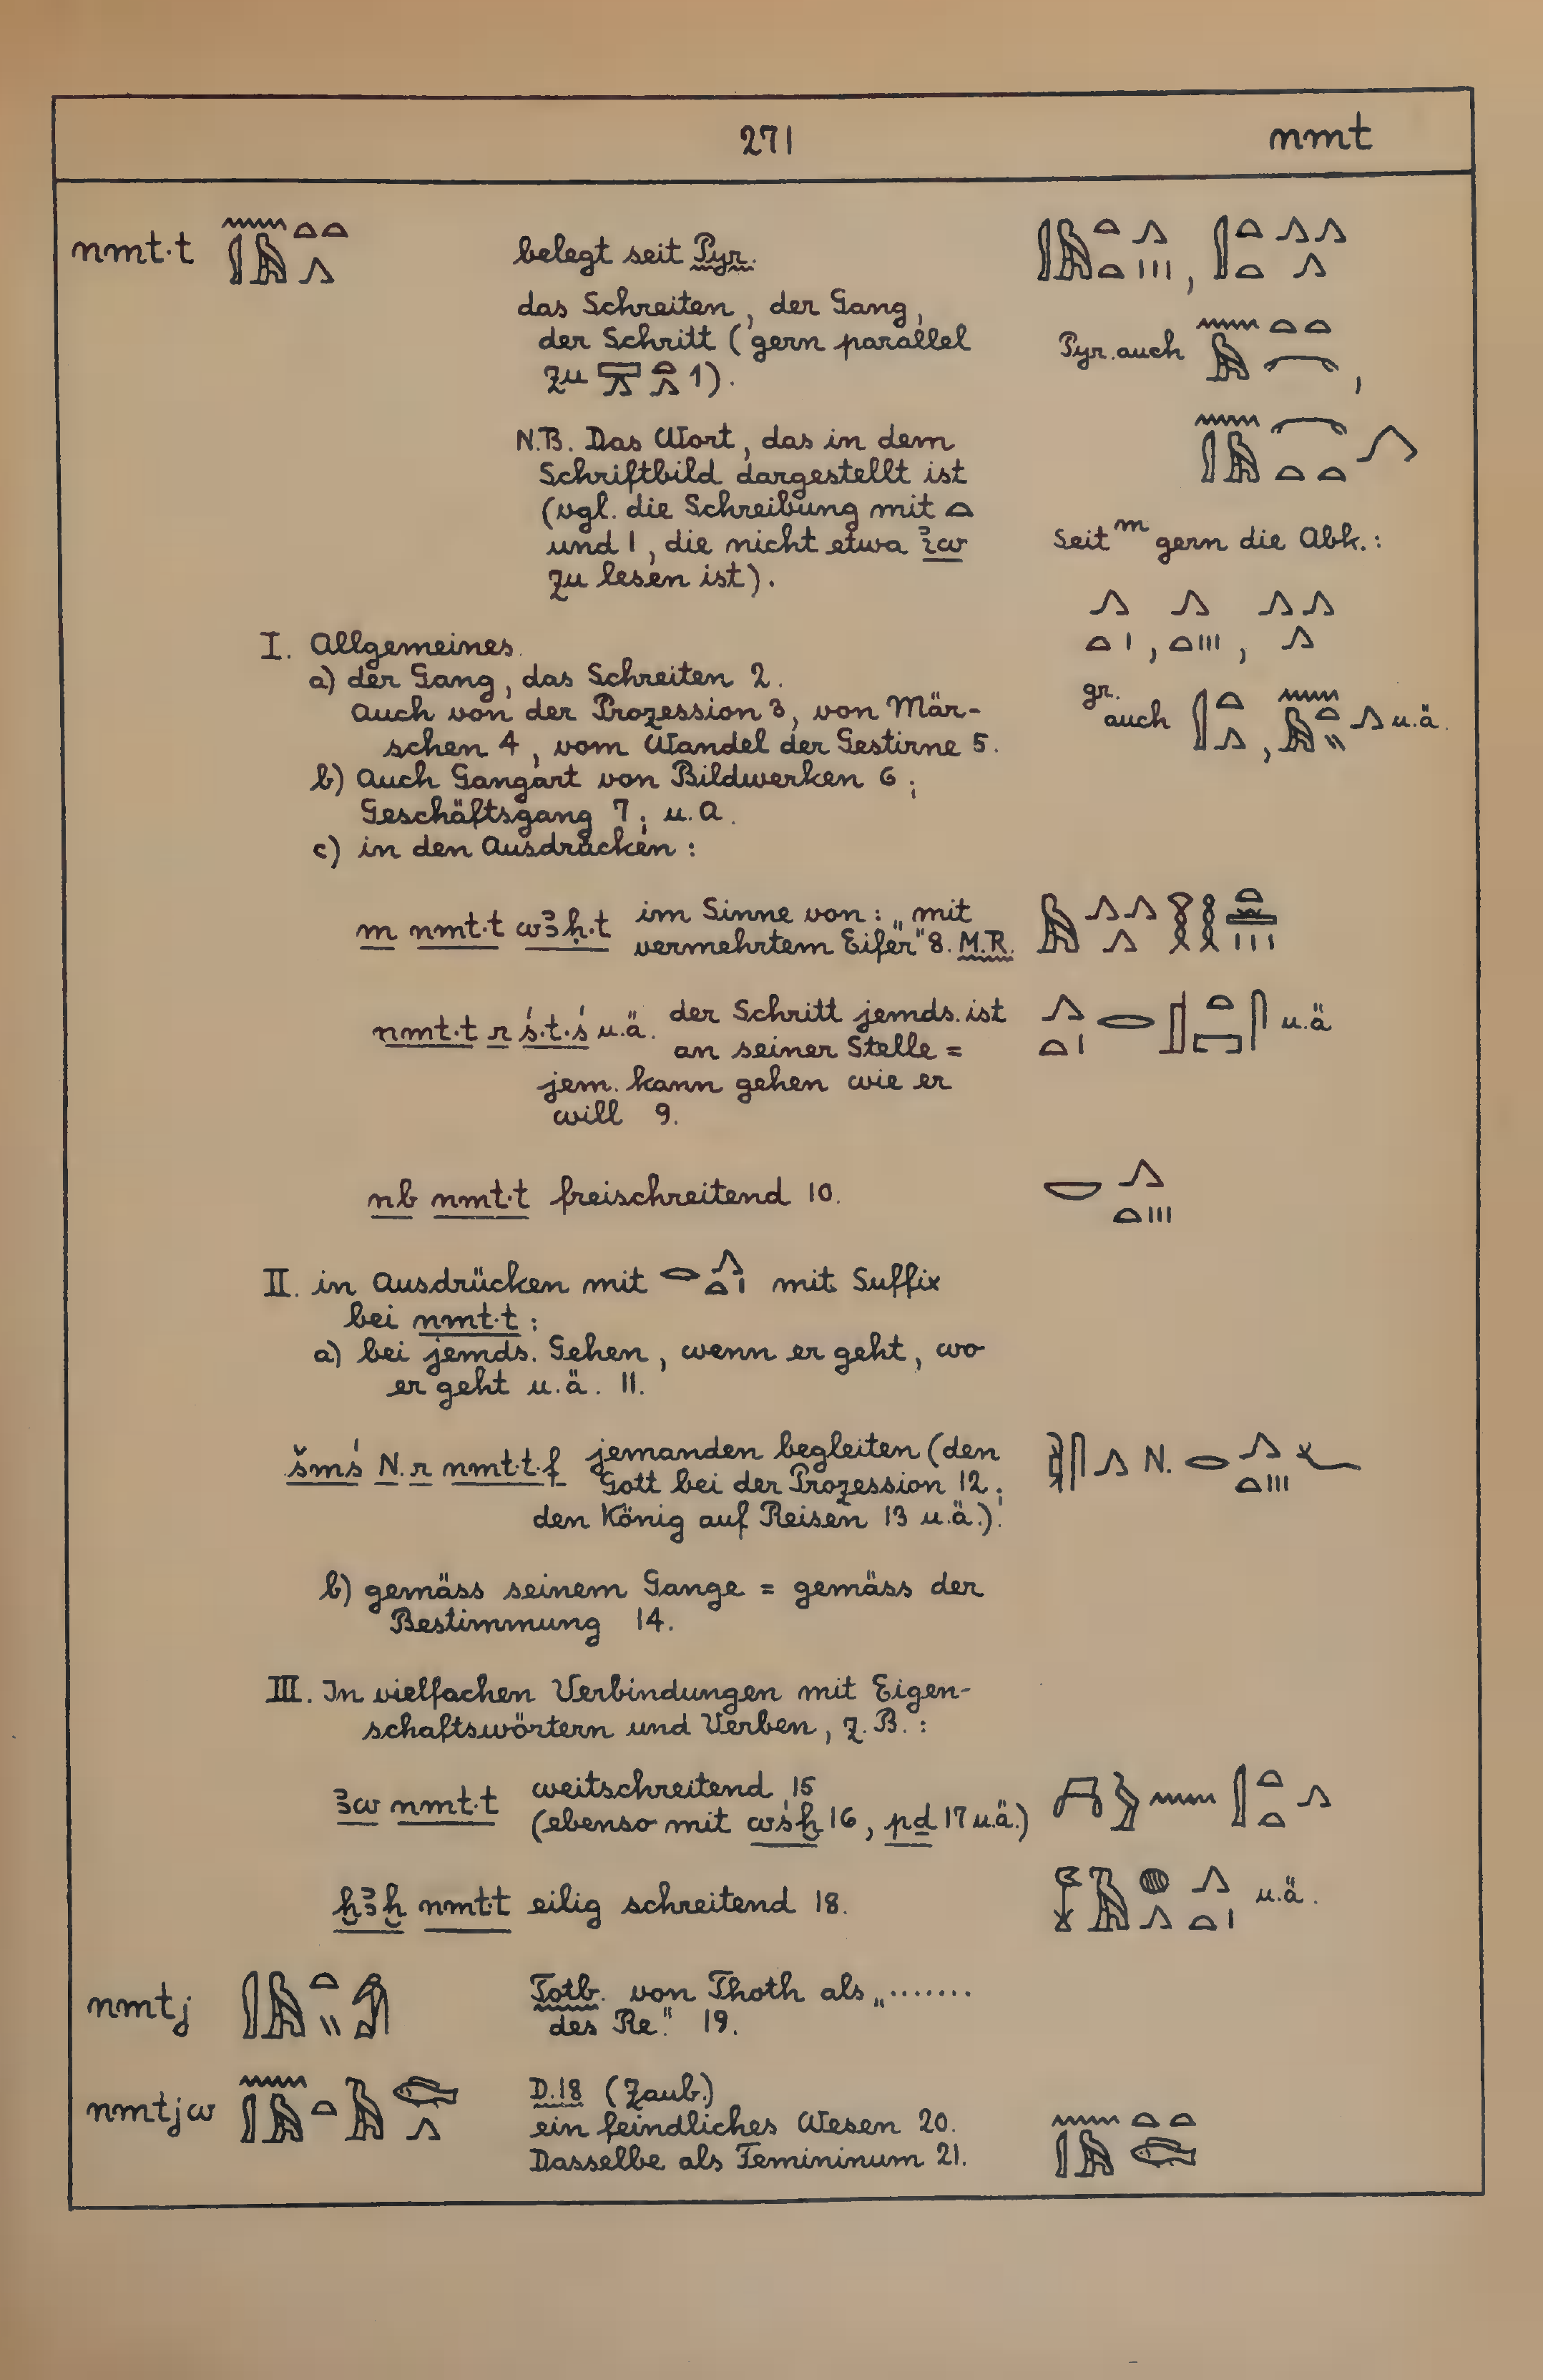 271 nmt
nmt·t belegt seit Pyr.
das Schreiten, der Gang,
der Schritt (gern parallel
zu 1).
Pyr. auch
N.B. Das Wort, das in dem
Schriftbild dargestellt ist
(vgl. die Schreibung mit
und I, die nicht etwa ꜣw
zu lesen ist).
seit m gern die Abk.:
I. Allgemeines.
a) der Gang, das Schreiten 2.
auch von der Prozession 3, von Mär-
schen 4, vom Wandel der Gestirne 5.
gr.
auch u.ä.
b) auch Gangart von Bildwerken 6;
Geschäftsgang 7; u.a.
c) in den Ausdrücken:
m nmt·t wꜣḥ·t im Sinne von: „mit
vermehrtem Eifer" 8. M.R.
nmt·t r ś·t·ś u.ä. der Schritt jemds. ist u.ä
an seiner Stelle =
jem. kann gehen wie er
will 9.
nb nmt·t freischreitend 10.
II. in Ausdrücken mit mit Suffix
bei nmt·t:
a) bei jemds. Gehen, wenn er geht, wo
er geht u.ä. 11.
šmś N. r nmt·t·f jemanden begleiten (den N.
Gott bei der Prozession 12;
den König auf Reisen 13 u.ä.).
b) gemäss seinem Gange = gemäss der
Bestimmung 14.
III. In vielfachen Verbindungen mit Eigen-
schaftswörtern und Verben, z.B.:
ꜣw nmt·t weitschreitend 15
(ebenso mit wśḫ 16, pḏ 17 u.ä.)
ḫꜣḫ nmt·t eilig schreitend 18. u.ä.
nmtj Totb. von Thoth als „.......
des Re." 19.
nmtjw D.18 (Zaub.)
ein feindliches Wesen 20.
Dasselbe als Femininum 21.